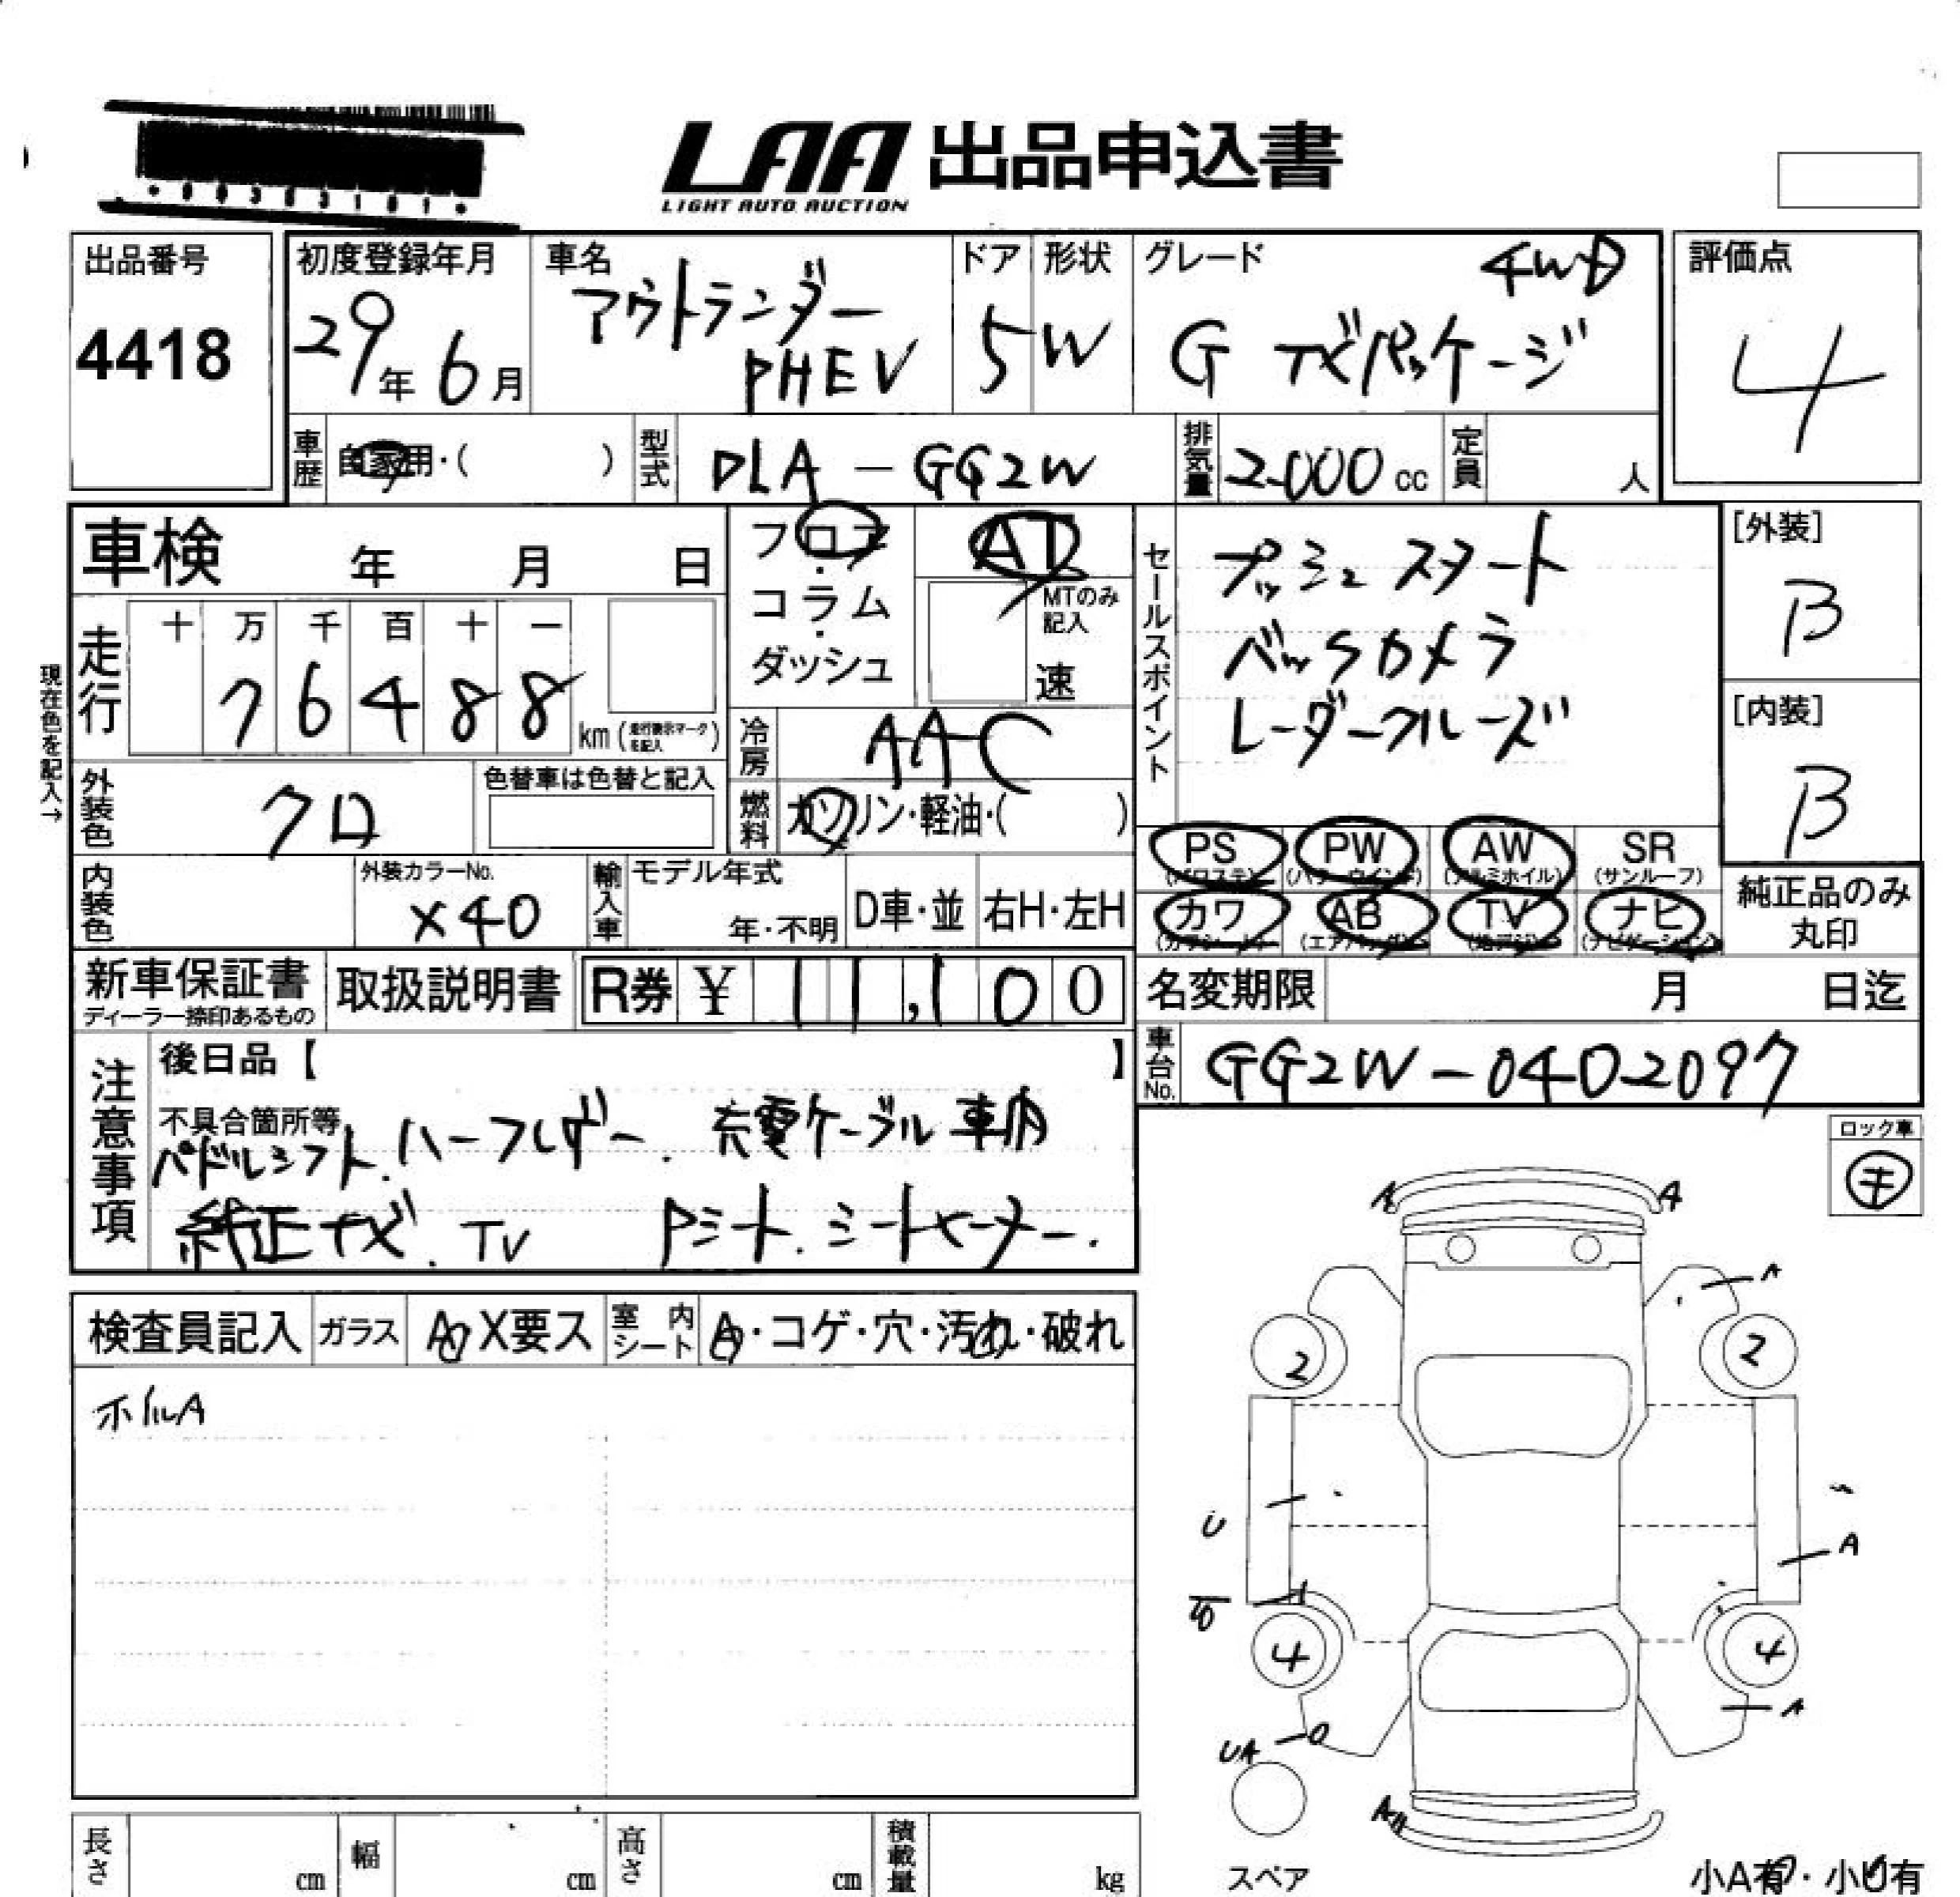 LAA 出品申込書
LIGHT AUTO AUCTION
出品番号
4418
初度登録年月
29年 6月
車名
アウトランダー
PHEV
ドア
5
形状
W
グレード
4WD
G ナビパッケージ
評価点
4
車歴 自家用・( )
型式 DLA-GG2W
排気量 2000 cc
定員 人
車検 年 月 日
フロア
・
コラム
・
ダッシュ
AT
MTのみ
記入
速
セールスポイント
プッシュスタート
バックカメラ
レーダークルーズ
[外装]
B
[内装]
B
現在色を記入→
走行
十 万 千 百 十 一
7 6 4 8 8 km (走行表示マークを記入)
冷房 AAC
外装色 クロ
色替車は色替と記入
燃料 ガソリン・軽油・( )
PS PW AW SR
(パワステ) (パワーウインド) (アルミホイル) (サンルーフ)
カワ AB TV ナビ
(カワシート) (エアバッグ) (地デジ) (ナビゲーション)
純正品のみ
丸印
内装色
外装カラーNo.
X40
輸入車
モデル年式
年・不明
D車・並
右H・左H
新車保証書
ディーラー捺印あるもの
取扱説明書
R券 ¥ 11,100
名変期限 月 日迄
車台No. GG2W-0402097
注意事項
後日品【 】
不具合箇所等
パドルシフト、ハーフレザー、充電ケーブル車内
純正ナビ、TV Pシート、シートヒーター、
ロック車
キ
検査員記入
ガラス A X要ス
室内シート A・コゲ・穴・汚れ・破れ
ホイルA
A A
A
2 2
U
A
4 4
A
UA
A
スペア
長さ cm
幅 cm
高さ cm
積載量 kg
小A有・小U有